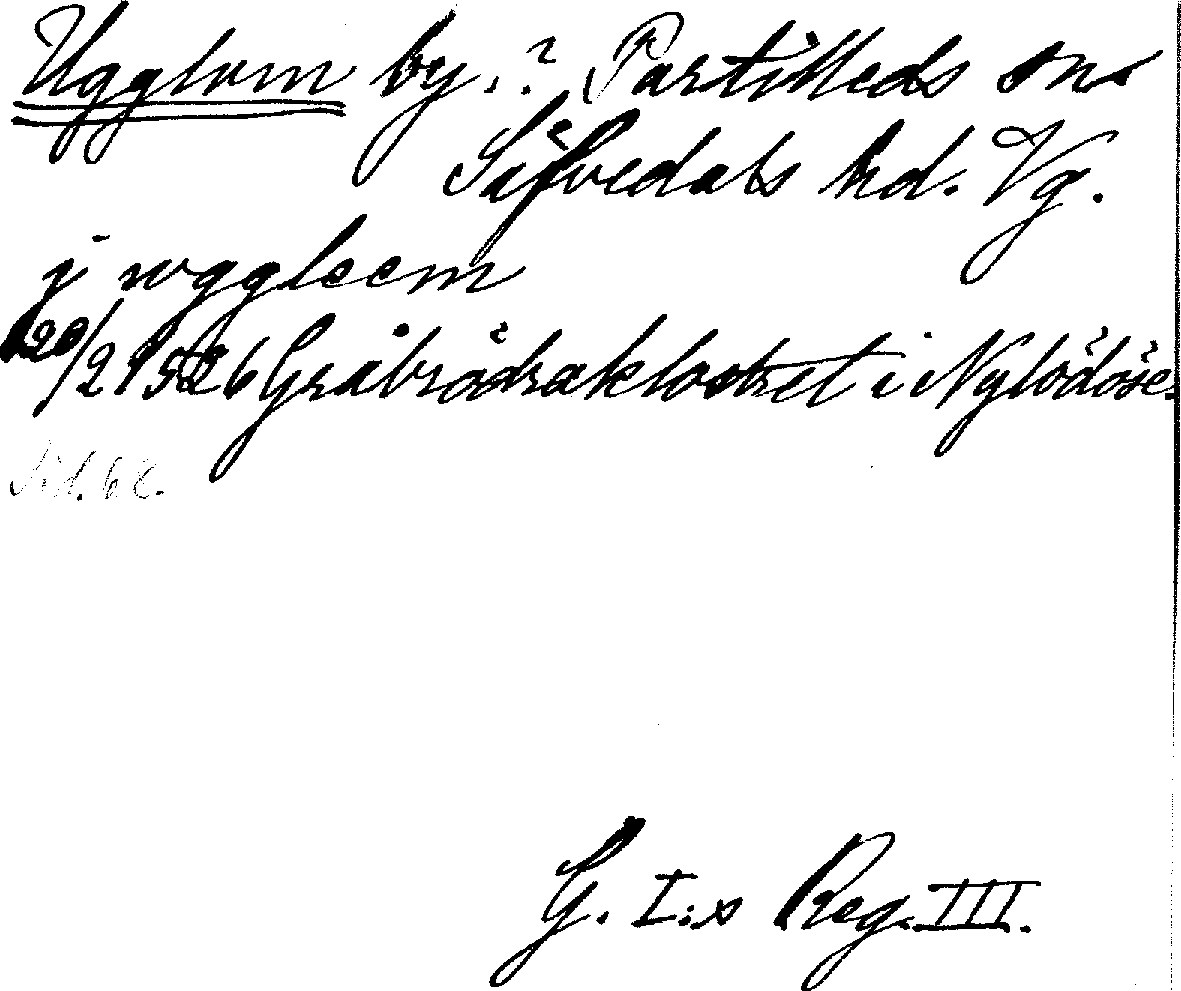 Ugglum by.? Partilleds sn.
Säfvedals hd. Vg.
j wggleem
20/2 1526 Gråbrödraklostret i Nylödöse.
Sid. 62.
G. I:s Reg. III.